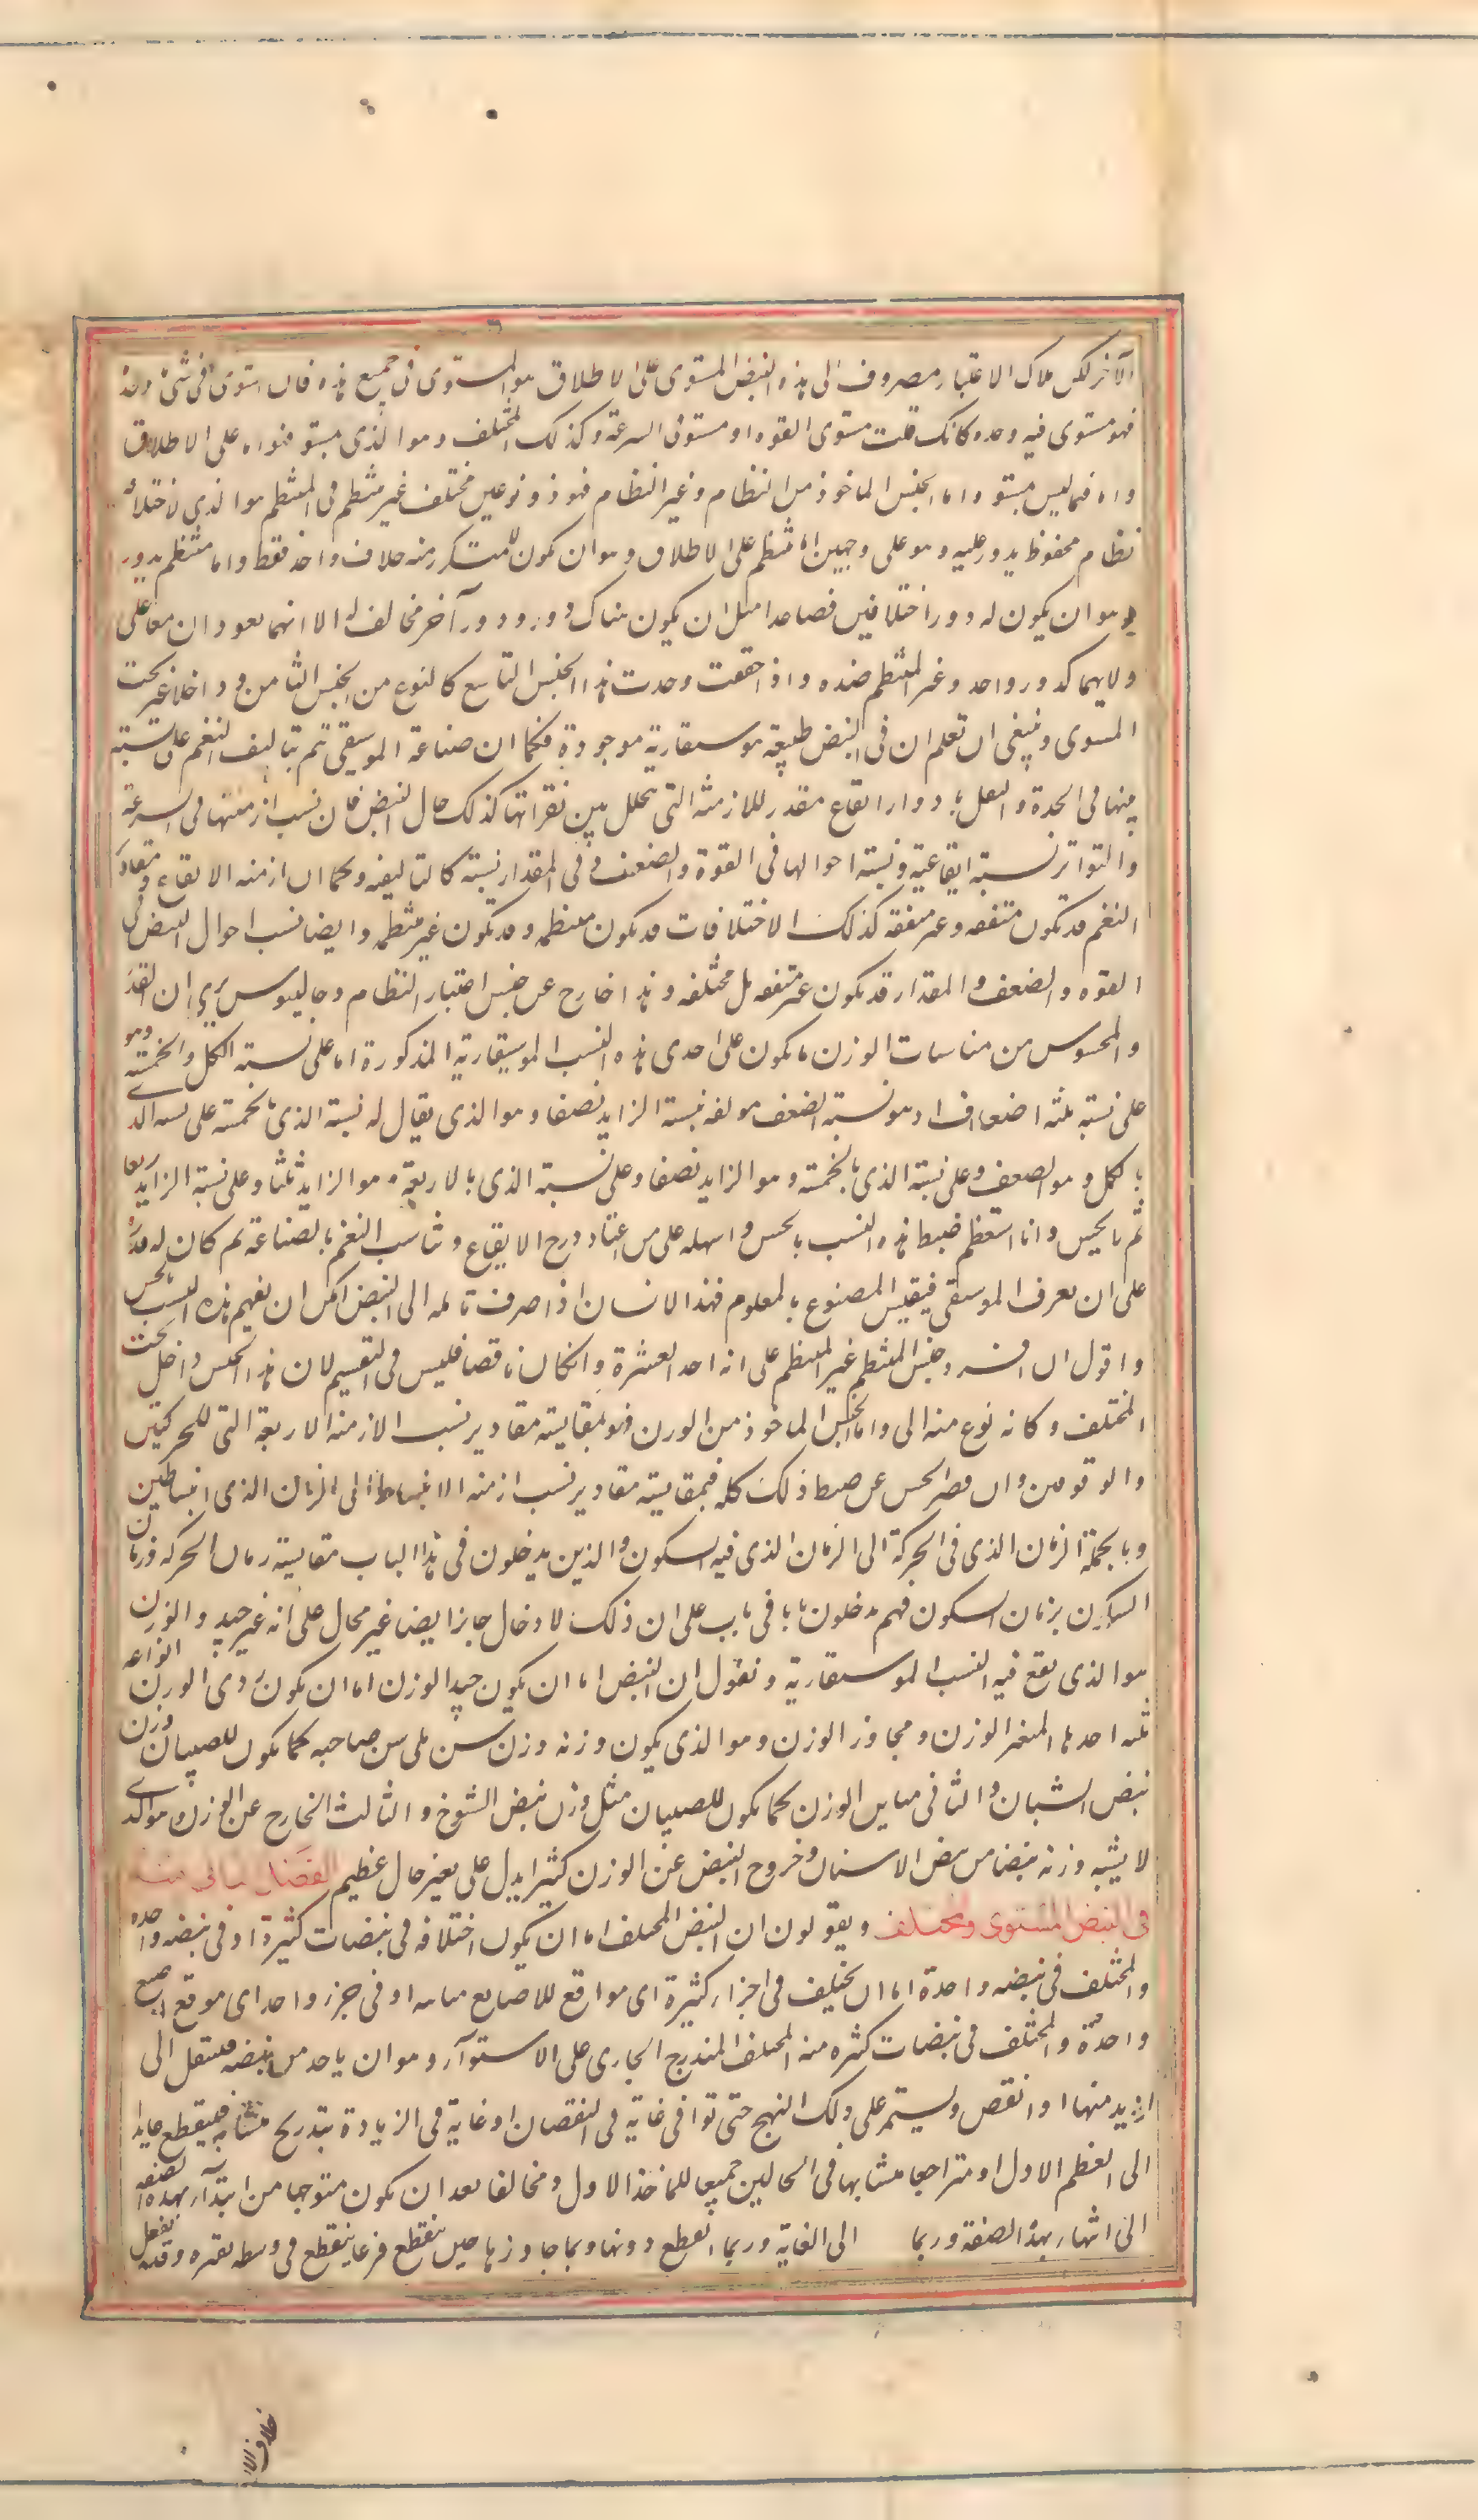 الآخر لكن ملاك الاعتبار مصروف الى هذه النبض المستوى على الاطلاق هو المستوى فى جميع هذه فان استوى فى شئ
فهو مستوى فيه وحده كانك قلت مستوى القوه او مستوى السرعة وكذلك المختلف وهو الذى ليس بمستو فهو اما على الاطلاق
واما فيما ليس بمستو واما الجنس الماخوذ من النظام وغير النظام فهو ذو نوعين مختلف غير منتظم فى المنتظم هو الذى لاختلافه
نظام محفوظ يدور عليه وهو على وجهين اما منتظم على الاطلاق وهو ان يكون المتكرر منه خلاف واحد فقط واما منتظم يدور
وهو ان يكون له دور اختلافين فصاعدا مثل ان يكون هناك دور ودور آخر مخالف له الا انهما يعودان معا على
ولايهما كدور واحد وغير المنتظم ضده واذا حققت وجدت هذا الجنس التاسع كالنوع من الجنس الثامن وداخلا غير تحت
المستوى وينبغى ان تعلم ان فى النبض طبيعة موسيقارية موجودة فكما ان صناعة الموسيقى تتم بتاليف النغم على نسبة
بينها فى الحدة والثقل بادوار ايقاع مقدر للازمنة التى تخلل بين نقراتها كذلك حال النبض فان نسب ازمنتها فى السرعة
والتواتر نسبة ايقاعية ونسبة احوالها فى القوة والضعف وفى المقدار نسبة كالتاليفيه وكما ان ازمنه الايقاع ومقادير
النغم قد تكون متفقه وغير متفقه كذلك الاختلافات قد تكون منتظمه وقد تكون غير منتظمه وايضا نسب احوال النبض فى
القوه والضعف والمقدار قد يكون غير متفقه بل مختلفه وهذا خارج عن جنس اعتبار النظام وجالينوس يرى ان القدر
والمحسوس من مناسبات الوزن ما يكون على احدى هذه النسب الموسيقارية المذكورة اما على نسبة الكل والخمسة وهو
على نسبة ثلثه اضعاف اذ هو نسبة الضعف مولفه بنسبة الزايد نصفا وهو الذى يقال له نسبة الذى بالخمسة على نسبه الذى
بالكل وهو الضعف وعلى نسبة الذى بالخمسة وهو الزايد نصفا وعلى نسبة الذى بالاربعة وهو الزايد ثلثا وعلى نسبة الزايد ربعا
ثم لا يحس وانا استعظم ضبط هذه النسب بالحس واسهله على من اعتاد درج الايقاع وتناسب النغم بالصناعة ثم كان له قدرة
على ان يعرف الموسيقى فيقيس المصنوع بالمعلوم فهذا الانسان اذا صرف تامله الى النبض امكن ان يفهم هذه النسب بالحس
واقول ان افراد جنس المنتظم غير المنتظم على انه احد العشرة وانكان ناقصا فليس فى التقسيم لان هذا الجنس داخل تحت
المختلف وكانه نوع منه الى واما الجنس الماخوذ من الوزن فهو بمقايسة مقادير نسب الازمنة الاربعة التى للحركتين
والوقوفين وان قصر الحس عن ضبط ذلك كله فبمقايسة مقادير نسب ازمنه الانبساط الى الزمان الذى انبساطين
وبالجملة الزمان الذى فى الحركة الى الزمان الذى فيه السكون والذين يدخلون فى هذا الباب مقايسة زمان الحركه وزمان
السكون بزمان السكون فهم يدخلون بابا فى باب على ان ذلك الادخال جايز ايضا غير محال على انه غير جيد والوزن
هو الذى يقع فيه النسب الموسيقارية ونقول ان النبض اما ان يكون جيد الوزن اما ان يكون ردى الوزن انواعه
ثلثه احدها المتغير الوزن ومجاوز الوزن وهو الذى يكون وزنه وزن سن يلى سن صاحبه كما يكون للصبيان وزن
نبض الشبان والثانى مباين الوزن كما يكون للصبيان مثل وزن نبض الشيوخ والثالث الخارج عن الوزن هو الذى
لا يشبه وزنه نبضا من نبض الاسنان وخروج النبض عن الوزن كثيرا يدل على تغير حال عظيم الفصل الثانى منه
فى النبض المستوى والمختلف ويقولون ان النبض المختلف اما ان يكون اختلافه فى نبضات كثيرة او فى نبضه واحده
والمختلف فى نبضه واحدة اما ان يختلف فى اجزاء كثيرة اى مواقع للاصابع متباينه او فى جزء واحد اى موقع اصبع
واحدة والمختلف فى نبضات كثيره منه المختلف المتدرج الجارى على الاستواء وهو ان ياخذ من نبضه فينتقل الى
ازيد منها او انقص ويستمر على ذلك النهج حتى توافى غاية فى النقصان او غاية فى الزيادة بتدريج متشابه فينقطع عايدا
الى العظم الاول او متراجعا متشابها فى الحالين جميعا للماخذ الاول ومخالفا بعد ان يكون متوجها من ابتداء بهذه الصفه
الى انتهاء بهذه الصفة وربما الى الغاية وربما انقطع دونها وربما جاوزها حين ينقطع فربما ينقطع فى وسطه بفتره وقد يفعل
خلاف الا